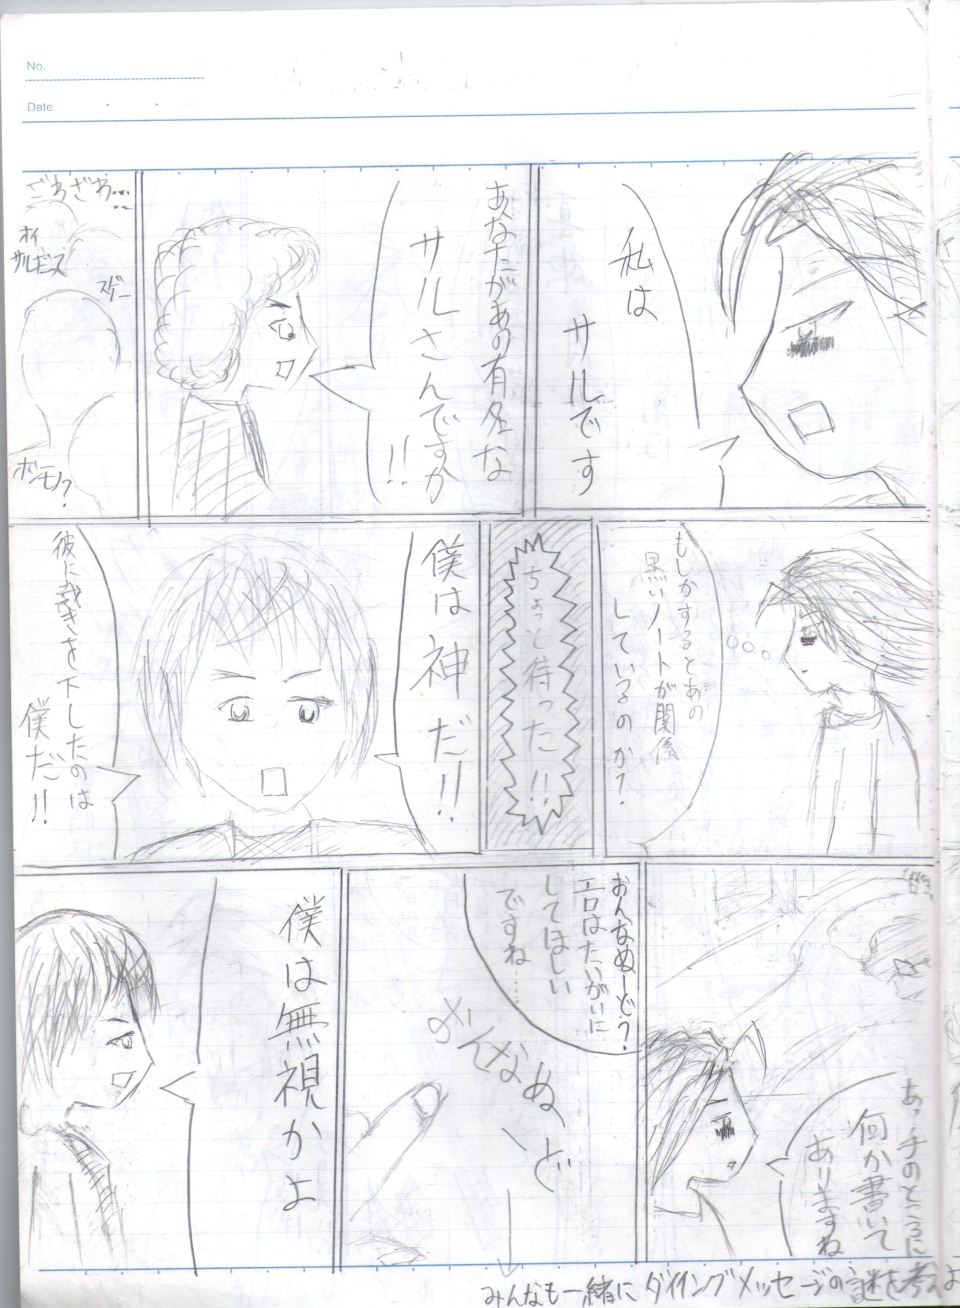 No.
Date
私は
サルです
あなたがあの有名な
サルさんですか
!!
ざわざわ……
オイ
サルだってス
スゲー
ホンモノ?
もしかするとあの
黒いノートが関係
しているのか?
ちょっと待った!!
僕は神だ!!
彼に裁きを下したのは
僕だ!!
あっ手のところに
何か書いて
ありますね
おんなぬーど?
エロはたいがいに
してほしい
ですね……
ぬーど
僕は無視かよ
みんなも一緒にダイイングメッセージの謎を考えよ